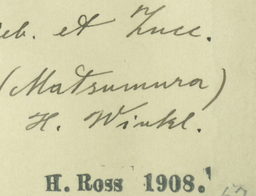 eb. et Zucc.
(Matsumura)
H. Winkl.
H. Ross 1908.